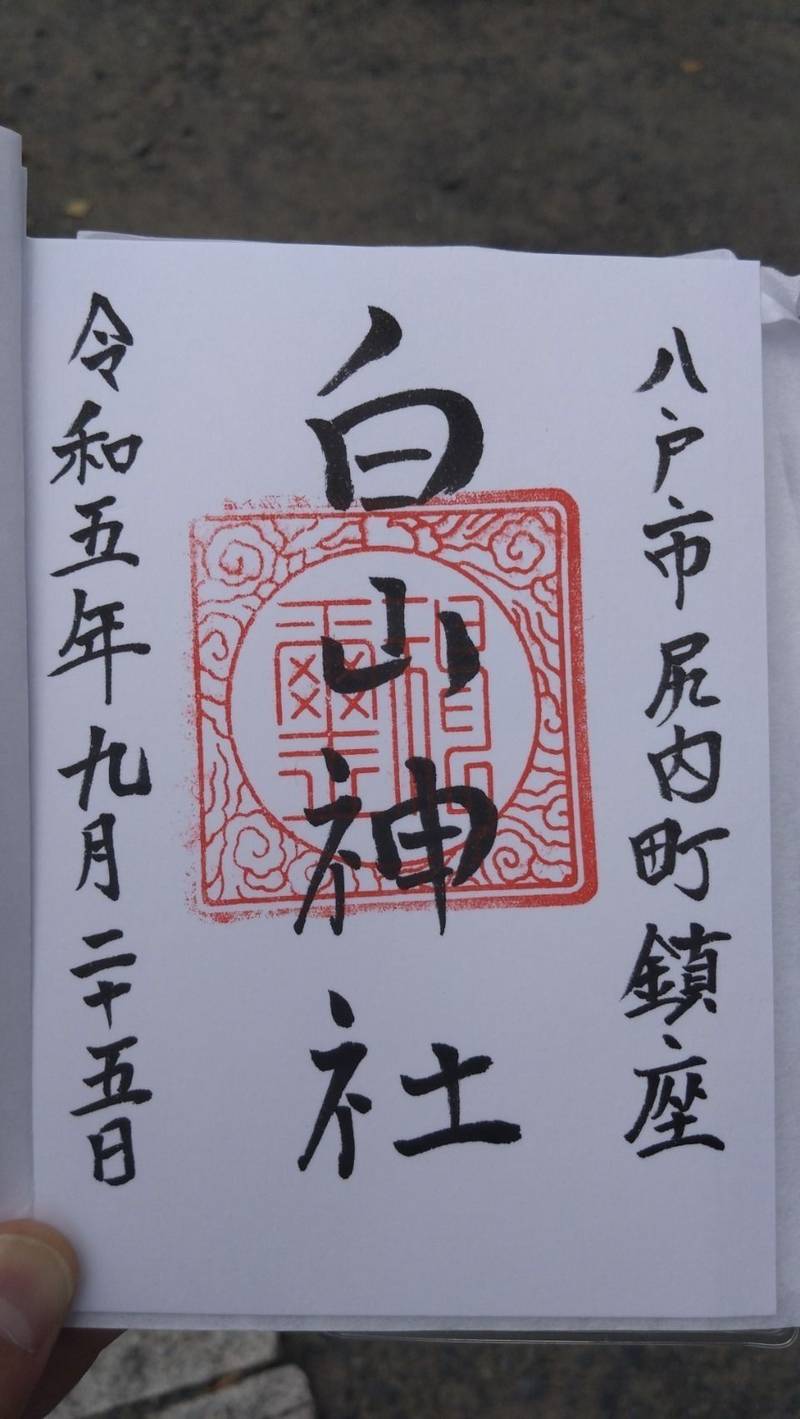 八戸市尻内町鎮座
白山神社
令和五年九月二十五日